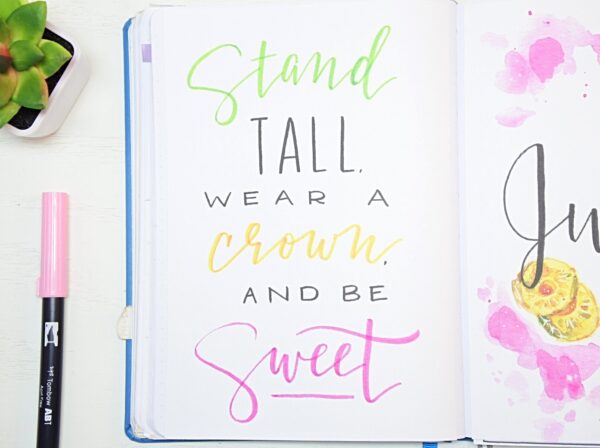 Stand
TALL,
WEAR A
crown,
AND BE
Sweet
Ju
Tombow ABT